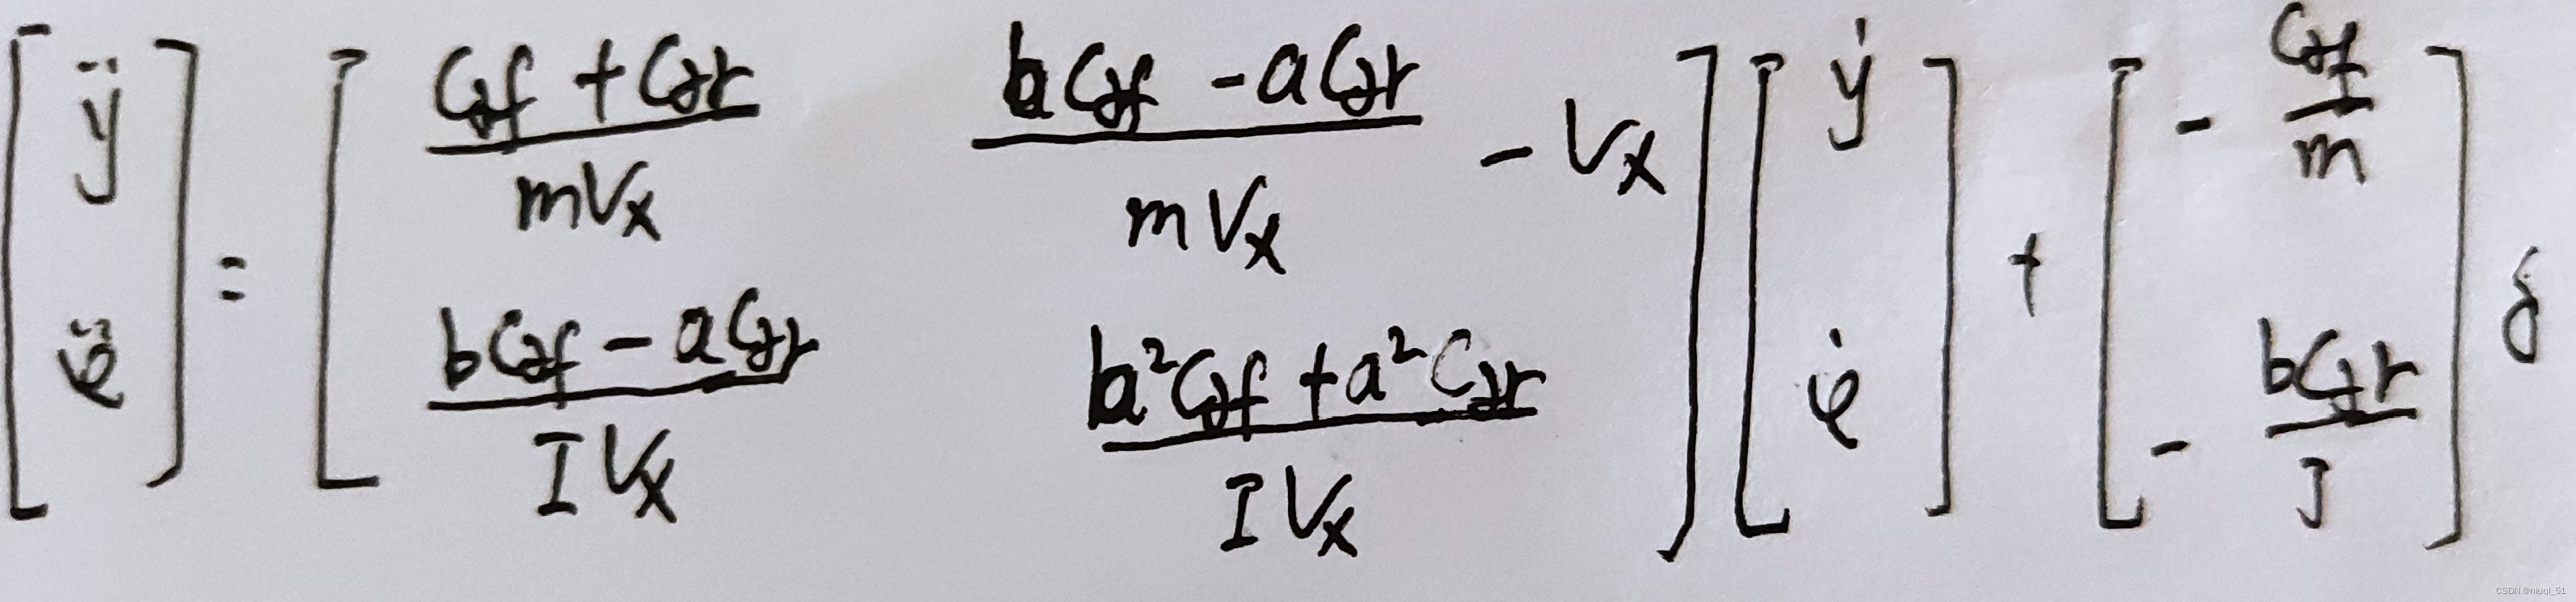 [ÿ; φ̈] = [(Cαf + Cαr)/(mVx), (bCαf - aCαr)/(mVx) - Vx; (bCαf - aCαr)/(IVx), (b²Cαf + a²Cαr)/(IVx)] [ẏ; φ̇] + [- Cαf/m; - bCαr/I] δ
CSDN @niuql_51